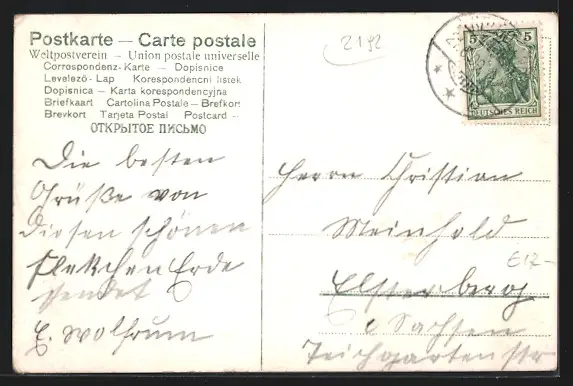 Postkarte — Carte postale
Weltpostverein — Union postale universelle
Correspondenz-Karte — Dopisnice
Levelező-Lap Korespondencni listek
Dopisnica — Karta korespondencyjna
Briefkaart Cartolina Postale — Brefkort
Brevkort Tarjeta Postal Postcard —
ОТКРЫТОЕ ПИСЬМО
Die besten
Grüße von
Diesen schönen
Flekchen Erde
sendet
E. Wolfrum
2192
5 5
DEUTSCHES REICH
Herrn Christian
Meinhold
€12-
Elsterberg
Sachsen
Teichgartenstr